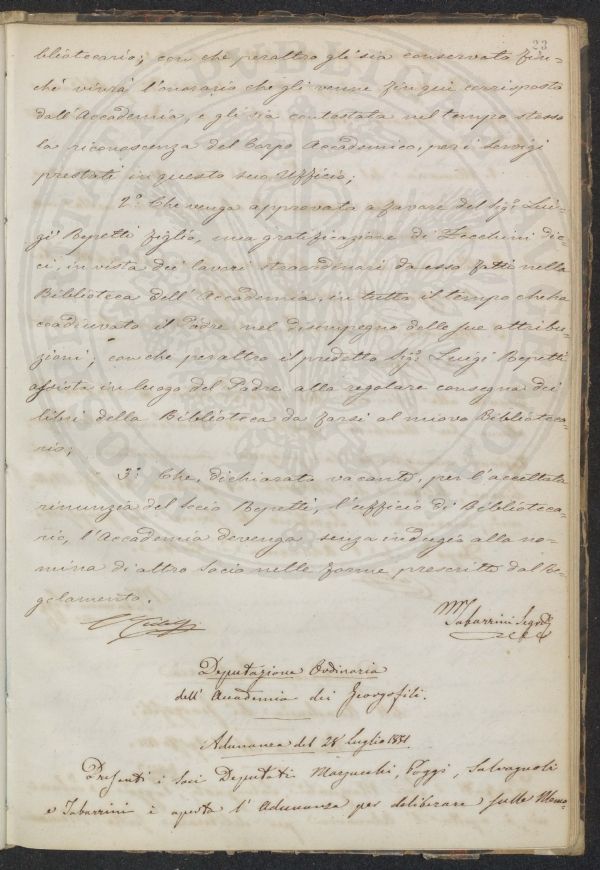 23
bliotecario; con che peraltro gli sia conservato fin-
chè vivrà l'onorario che gli venne fin qui corrisposto
dall'Accademia, e gli sia contestata nel tempo stesso
la riconoscenza del Corpo Accademico, per i servigi
prestati in questo suo Ufficio;
2.° Che venga approvata a favore del Sig.r Lui-
gi Repetti figlio, una gratificazione di Zecchini die-
ci, in vista dei lavori straordinari da esso fatti nella
Biblioteca dell'Accademia, in tutto il tempo che ha
coadiuvato il Padre nel disimpegno delle sue attribu-
zioni; con che peraltro il predetto Sig.r Luigi Repetti
assista in luogo del Padre alla regolare consegna dei
libri della Biblioteca da farsi al nuovo Biblioteca-
rio;
3.° Che, dichiarato vacante, per l'accettata
rinunzia del Socio Repetti, l'ufficio di Biblioteca-
rio, l'Accademia devenga senza indugio alla no-
mina di altro Socio nelle forme prescritte dal Re-
golamento.
Tabarrini Seg.
Deputazione Ordinaria
dell'Accademia dei Georgofili.
Adunanza del 28 Luglio 1851.
Presenti i Soci Deputati Poggi, Salvagnoli
e Tabarrini è aperta l'Adunanza per deliberare sulle Memo-